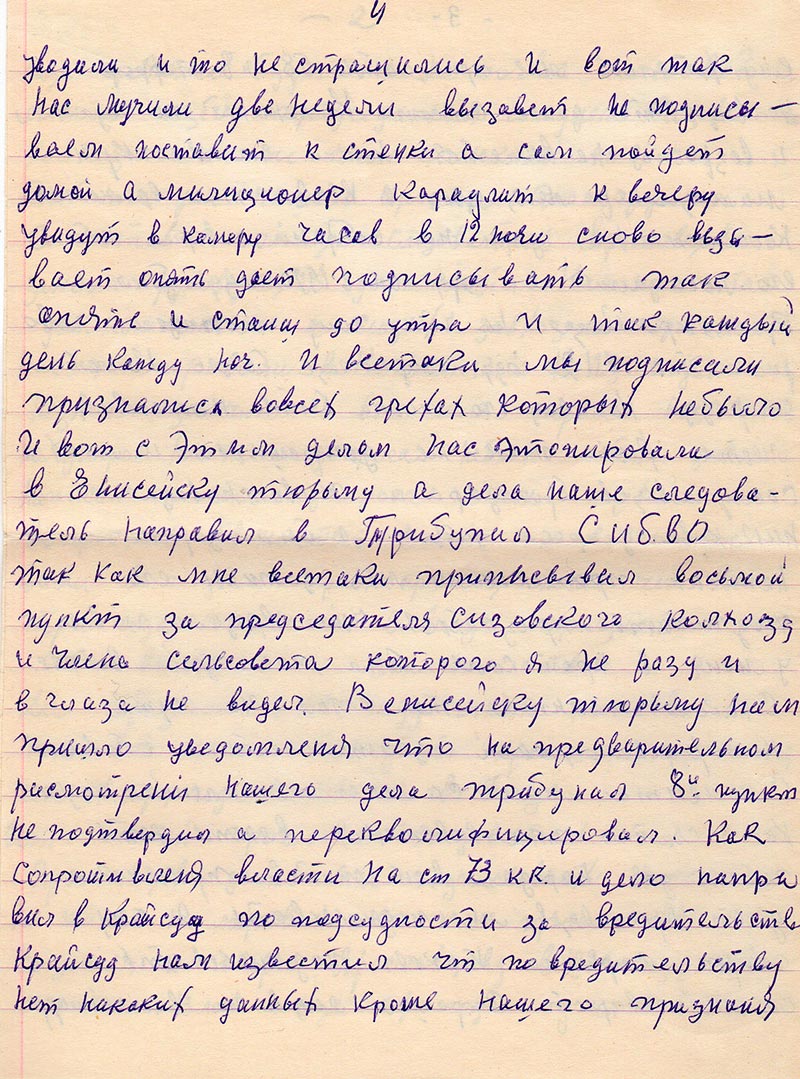 4
уводили и то не страшились и вот так
нас мучили две недели вызавет не подписы-
ваем поставит к стенки а сам пойдет
домой а милиционер караулит к вечеру
увидут в камеру часов в 12 ночи снова вызы-
вает опять дает подписывать так
опять и стаиш до утра и так каждый
день кажду ноч. И всетаки мы подписали
признались вовсех грехах которых небыло
И вот с этим делом нас этопировали
в Енисейску тюрьму а дела наше следова-
тель направил в Трибунал СибВО
так как мне всетаки приписывал восьмой
пункт за председателя Сизовского колхоза
и члена сельсовета которого я не разу и
в глаза не видел. В енисейску тюрьму нам
пришло уведомленя что на предварительном
расмотрени нашего дела трибунал 8й пункт
не подтвердил а переквалифицировал. Как
сопротивленя власти на ст 73 кк. и дело напра
вил в Крайсуд по подсудности за вредительств
Крайсуд нам известил чт по вредительству
нет накаких данных кроме нашего признаня